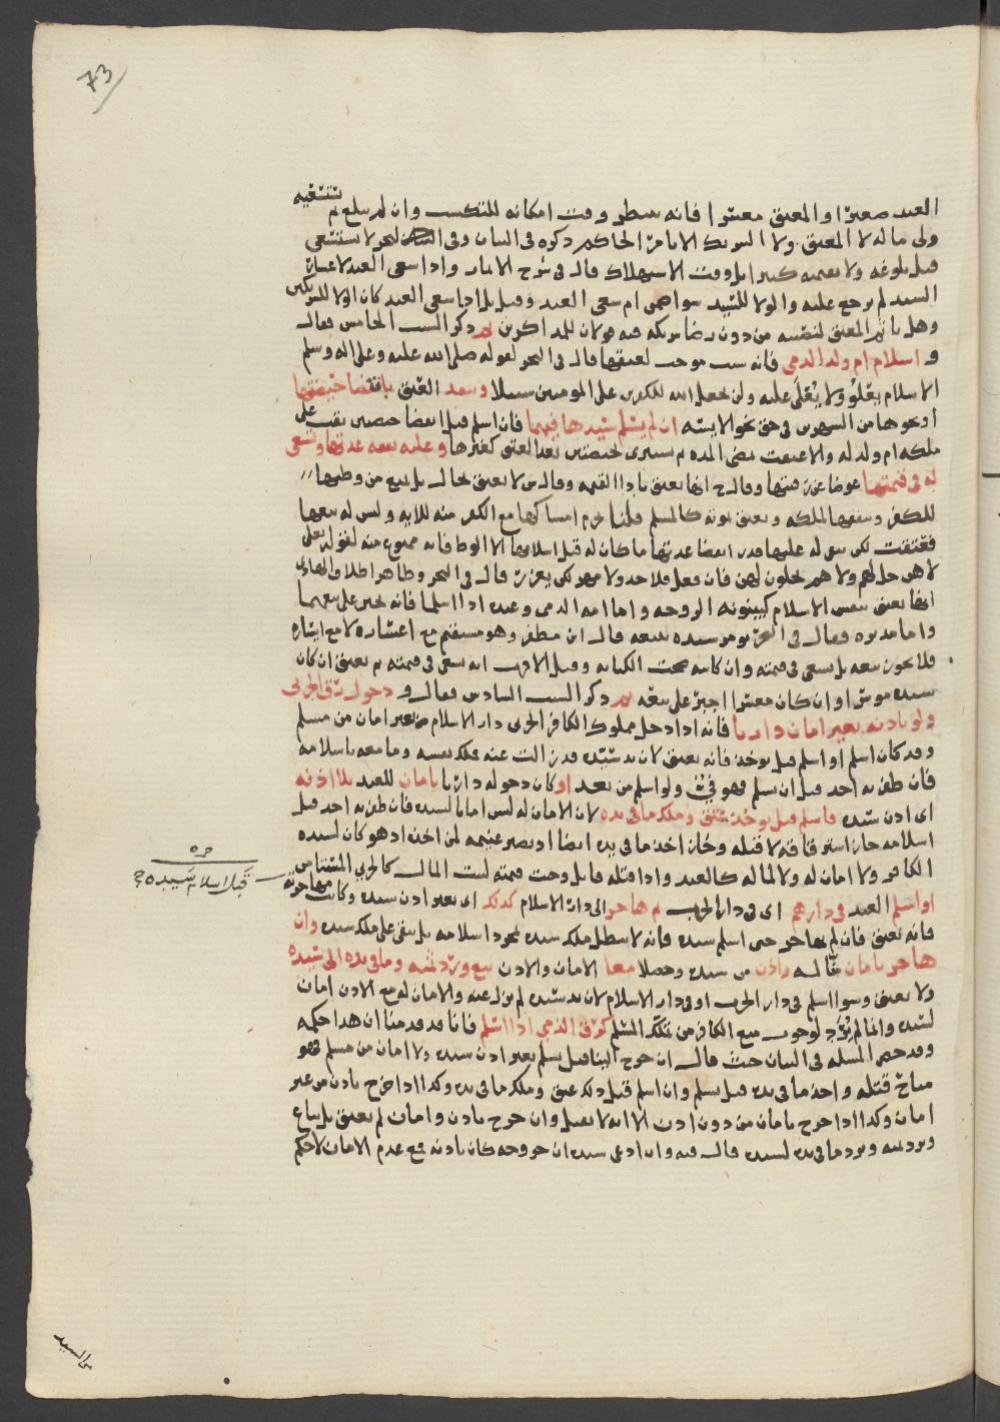 73
العبد صغيرا والمعتق معسرا فانه ينتظر وقت امكانه للتكسب وان لم يبلغ ثم تستسعيه
ولي ماله لا المعتق ولا الشريك الا بامر الحاكم ذكره في البيان وفي البحر لا يستسعى
قبل بلوغه ولا بقيمته كبيرا بل وقت الاستهلاك قال في شرح الاثمار واذا سعى العبد لاعسار
السيد لم يرجع عليه والولاء للسيد سواء ضمن ام سعى العبد وقيل بل اذا سعى العبد كان الولاء للشريكين
وهل ياثم المعتق لنصيبه من دون رضا شريكه فيه قولان للمذاكرين ثم ذكر السبب الخامس فقال
و اسلام ام ولد الذمي فانه سبب موجب لعتقها قال في البحر لقوله صلى الله عليه وعلى اله وسلم
الاسلام يعلو ولا يعلى عليه ولن يجعل الله للكافرين على المومنين سبيلا وبعد العتق بانقضا حيضتيها
او نحوها من الشهرين في حق نحو الايسه ان لم يسلم سيدها فيهما فان اسلم قبل انقضا حيضتين بقت على
ملكه ام ولد له والا عتقت بمضي المده ثم تستبرى بحيضتين بعد العتق كغيرها وعليه نفقه عدتها وتسعى
له في قيمتها عوضا عن رقبتها وقال ح انها تعتق باداء القيمه وقال ش لا تعتق بحال بل يمنع من وطيها
للكفر وينفقها لملكه وتعتق بموته كالمسلم قلنا يحرم امساكها مع الكفر منه للايه وليس له بيعها
فعتقت لكن يبقى له عليها قدر انقضا عدتها ما كان له قبل اسلامها الا الوطء فانه ممنوع منه لقوله تعالى
لا هن حل لهم ولا هم يحلون لهن فان فعل فلا حد ولا مهر لكن يعزر قال في البحر وظاهر اطلاق الهادي
انها تعتق بنفس الاسلام كبينونه الزوجه واما امه الذمي وعبده اذا اسلما فانه يجبر على بيعهما
واما مدبره فقال في البحر يومر سيده ببيعه قال ان مظفر وهو مستقيم مع اعساره لا مع ايساره
فلا يجوز بيعه بل يسعى في قيمته وان كاتبه صحت الكتابه وقيل الاقرب انه يسعى في قيمته ثم يعتق ان كان
سيده موسرا وان كان معسرا اجبر على بيعه ثم ذكر السبب السادس فقال و دخول رق الحربي
ولو باذنه بغير امان دارنا فانه اذا دخل مملوك الكافر الحربي دار الاسلام من غير امان من مسلم
وقد كان اسلم او اسلم قبل يوخذ فانه يعتق لان يد سيده قد زالت عنه فملك نفسه وما معه باسلامه
فان ظفر به احد قبل ان يسلم فهو فيء ولو اسلم من بعد او كان دخوله دارنا بامان للعبد بلا اذنه
اي اذن سيده فاسلم قبل يوخذ عتق وملك ما في يده لان الامان له ليس امانا لسيده فان ظفر به احد قبل
اسلامه جاز استرقاقه لا قتله وجاز اخذ ما في يده ايضا اذ يصير غنيمه لمن اخذه اذ هو كان لسيده
الكافر ولا امان له ولا لماله كالعبد واذا قتله قاتل وجبت قيمته لبيت المال كالحربي المستامن
او اسلم العبد في دارهم اي في دار الحرب ثم هاجر الى دار الاسلام كذلك اي بغير اذن سيده وكانت مهاجرته
قبل اسلام سيده صح
حره
فانه يعتق فان لم يهاجر حتى اسلم سيده فانه لا يبطل ملك سيده بمجرد اسلامه بل يبقى على ملك سيده وان
هاجر بامان حاله واذن من سيده وحصلا معا الامان والاذن بيع ورد ثمنه وما في يده الى سيده
ولا يعتق وسوا اسلم في دار الحرب او في دار الاسلام لان يد سيده لم تزل عنه والامان لو مع الاذن امان
لسيده وانما لم يُرد لوجوب منع الكافر من تملك المسلم كرق الذمي اذا اسلم فانا قد قدمنا ان هذا حكمه
وقد حصر المسله في البيان حيث قال ان خرج الينا قبل يسلم بغير اذن سيده ولا امان من مسلم فهو
مباح قتله واخذ ما في يده قبل يسلم وان اسلم قبل ذلك عتق وملك ما في يده وكذا اذا خرج باذن من غير
امان وكذا اذا خرج بامان من دون اذن الا انه لا يقتل وان خرج باذن وامان لم يعتق بل يباع
ويرد ثمنه ويرد ما في يده لسيده قال فيه وان ادعى سيده ان خروجه كان باذنه فمع عدم الامان لا حكم